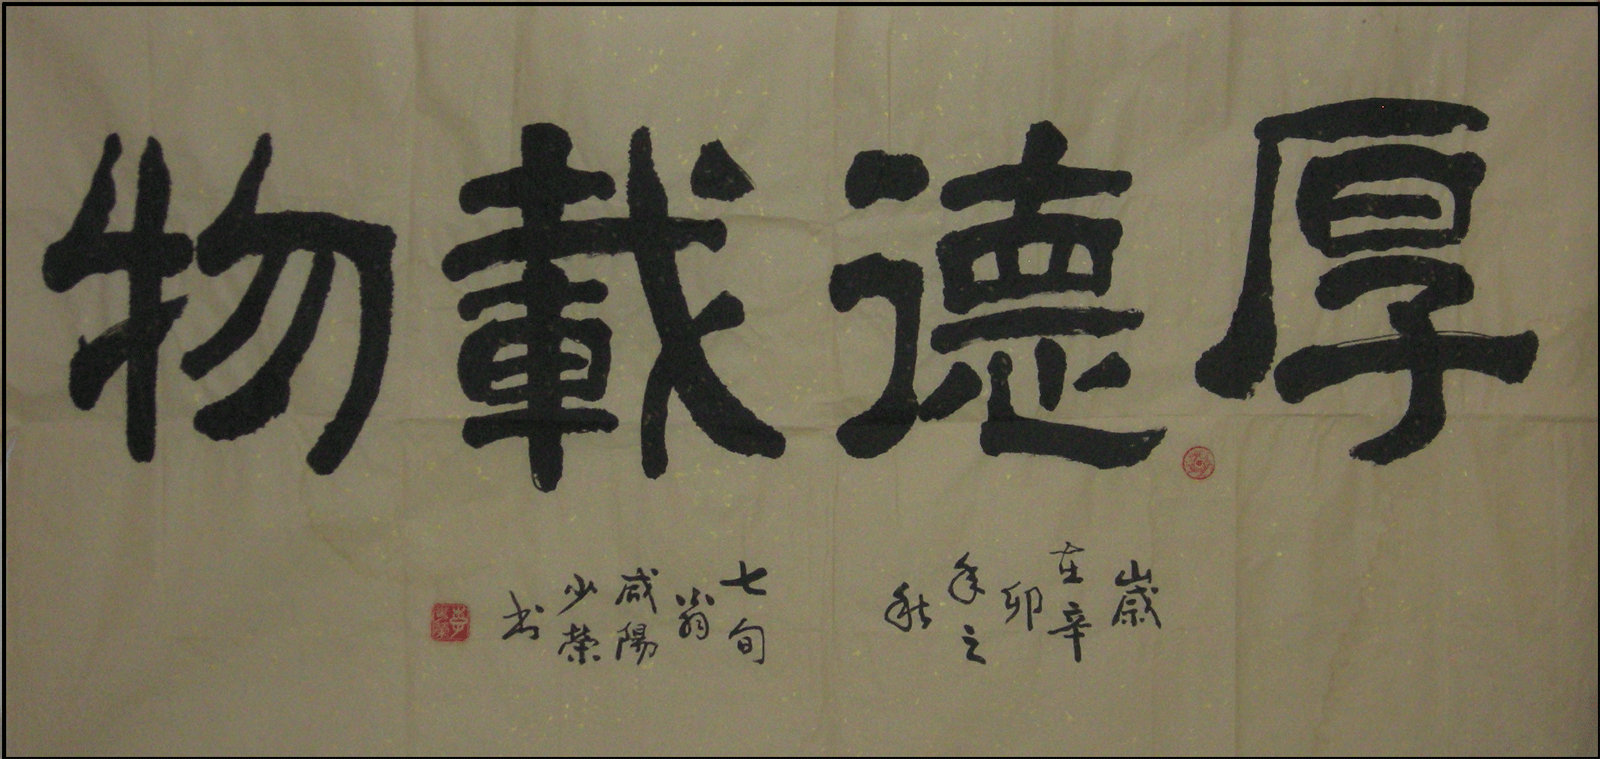 厚德載物
歲
在辛
卯
年之
秋
七旬
翁
咸陽
少榮
书